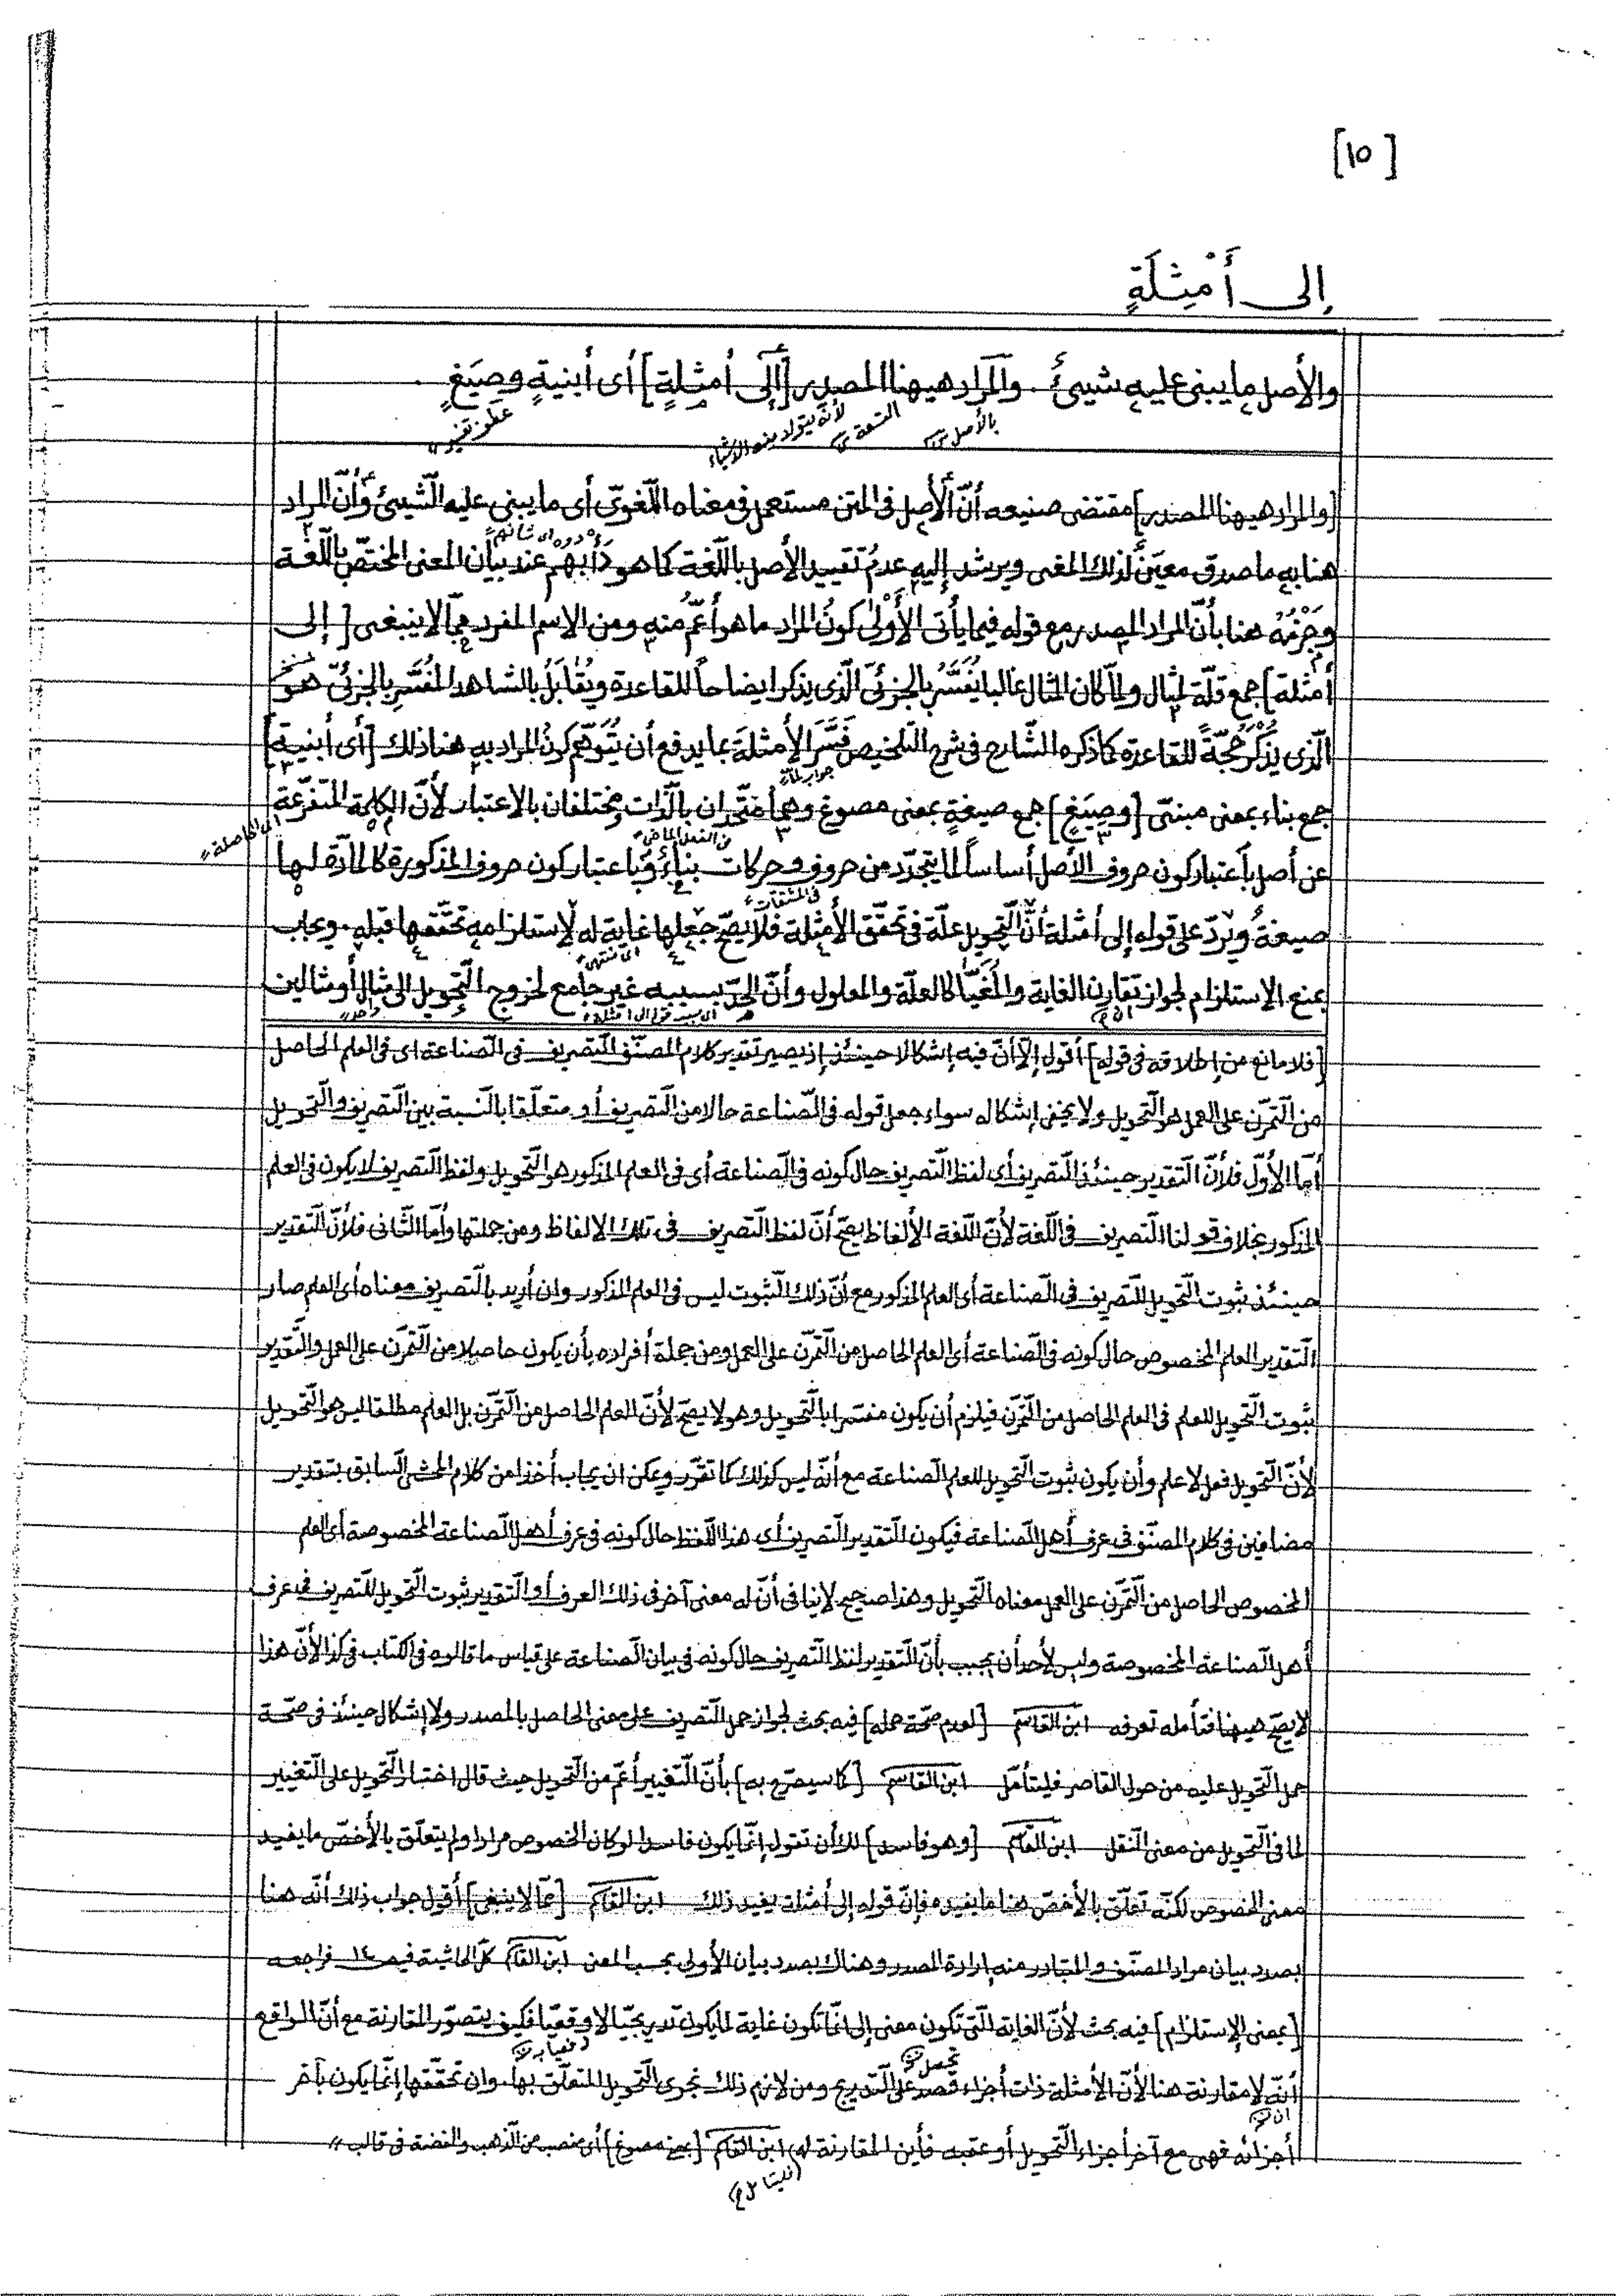 [١٥]
إلى أَمْثِلَةٍ
والأصل ما يبنى عليه شيئ . والمراد هيهنا المصدر [إلى أمثلة] أى أبنيةٍ وصِيَغٍ .
بالأصل التسعة لأنّه يتولد منه الأشياء عطف تفسير
[والمراد هيهنا المصدر] مقتضى صنيعه أنّ الأصل فى المتن مستعمل فى معناه اللّغوىّ أى ما يبنى عليه الشّيئ وأنّ المراد
هنا به ما صدق معيَّن لذلك المعنى ويرشد إليه عدمُ تقييد الأصل باللّغة كما هو دأبهم عند بيان المعنى المختصّ باللّغة
وجَزْمُهُ هنا بأنّ المراد المصدر مع قوله فيما يأتى الأَوْلى كونُ المراد ما هو أعمُّ منه ومن الاسم المفرد ممّا لا ينبغى [إلى
أمثلة] جمع قلّة لمثال ولمّا كان المثال غالبا يُفَسَّرُ بالجزئىّ الّذى يذكر ايضاحاً للقاعدة ويُقَابَلُ بالشاهد المُفَسَّرِ بالجزئىّ هو
الّذى يُذْكَرُ حُجّةً للقاعدة كما ذكره الشّارح فى شرح التلخيص فَسَّرَ الأمثلةَ بما يدفع أن يُتَوَهّم كونُ المراد به هنا ذلك [أى أبنية]
جواب لمّا
جمع بناء بمعنى مبنىّ [وصِيَغٍ] جمع صيغةٍ بمعنى مصوغ وهما متّحدان بالذّات ومختلفان بالاعتبار لأنّ الكلمة المتفرّعة
من الفعل الماضى اى الحاصلة
عن أصل باعتبار كون حروف الأصل أساساً لما يتجدّد من حروف وحركات بناءٌ وباعتبار كون حروف المذكورة كالمادّة لها
فى المشتقات
صيغةٌ ويَرِدّ على قوله إلى أمثلة أنّ التّحويل علّة فى تحقّق الأمثلة فلا يصحّ جعلها غاية له لإستلزامه تحقّقها قبله . ويجاب
اى منتهى
بمنع الإستلزام لجواز تقارن الغاية والمُغَيّا كالعلّة والمعلول وأنّ الحدّ بسببه غير جامع لخروج التّحويل إلى مثال أو مثالين
اى بسبب قوله إلى أمثلة واحد
[فلا مانع من إطلاقه فى قوله] أقول إلّا أنّ فيه إشكالا حينئذ إذ يصير تقدير كلام المصنّف التّصريف فى الصّناعة اى فى العلم الحاصل
من التّمرّن على العمل هو التّحويل ولا يخفى إشكاله سواء جعل قوله فى الصّناعة حالا من التّصريف أو متعلّقا بالنّسبة بين التّصريف والتّحويل
أمّا الأوّل فلأنّ التّقدير حينئذ التّصريف أى لفظ التّصريف حال كونه فى الصّناعة أى فى العلم المذكور هو التّحويل ولفظ التّصريف لا يكون فى العلم
المذكور بخلاف قولنا التّصريف فى اللّغة لأنّ اللّغة الألفاظ يصحّ أنّ لفظ التّصريف فى تلك الالفاظ ومن جملتها وأمّا الثّانى فلأنّ التّقدير
حينئذ ثبوت التّحويل للتّصريف فى الصّناعة أى العلم المذكور مع أنّ ذلك الثّبوت ليس فى العلم المذكور وان أريد بالتّصريف معناه أى العلم صار
التّقدير العلم المخصوص حال كونه فى الصّناعة أى العلم الحاصل من التّمرّن على العمل ومن جملة أفراده بأن يكون حاصلا من التّمرّن على العمل والتّقدير
ثبوت التّحويل للعلم فى العلم الحاصل من التّمرّن فيلزم أن يكون مفسّرا بالتّحويل وهو لا يصحّ لأنّ العلم الحاصل من التّمرّن بل العلم مطلقا ليس هو التّحويل
لأنّ التّحويل فعل لا علم وأن يكون ثبوت التّحويل للعلم الصّناعة مع أنّه ليس كذلك كما تقرّر ويمكن ان يجاب أخذا من كلام المحشى السّابق بتقدير
مضافين فى كلام المصنّف فى عرف أهل الصّناعة فيكون التّقدير التّصريف أى هذا اللّفظ حال كونه فى عرف أهل الصّناعة المخصوصة أى العلم
المخصوص الحاصل من التّمرّن على العمل معناه التّحويل وهذا صحيح لا ينافى أنّ له معنى آخر فى ذلك العرف أو التّقدير ثبوت التّحويل للتّصريف فى عرف
أهل الصّناعة المخصوصة وليس لأحد أن يجيب بأنّ التّقدير لفظ التّصريف حال كونه فى بيان الصّناعة على قياس ما قالوه فى الكتاب فى كذا لأنّ هذا
لا يصحّ هيهنا فتأمله تعرفه ابن القاسم [لعدم صحّة حمله] فيه بحث لجواز حمل التّصريف على معنى الحاصل بالمصدر ولا إشكال حينئذ فى صحّة
حمل التّحويل عليه من حول القاصر فليتأمّل ابن القاسم [كما سيصرّح به] بأنّ التّغيير أعمّ من التّحويل حيث قال اختار التّحويل على التّغيير
لما فى التّحويل من معنى النّقل ابن القاسم [وهو فاسد] لك أن تقول إنّما يكون فاسدا لو كان الخصوص مرادا ولم يتعلّق بالأخصّ ما يفيد
معنى الخصوص لكنّه تعلّق بالأخصّ هنا ما يفيده فإنّ قوله إلى أمثلة يفيد ذلك ابن القاسم [ممّا لا ينبغى] أقول جواب ذلك أنّه هنا
بصدد بيان مراد المصنّف والمتبادر منه إرادة المصدر وهناك بصدد بيان الأولى بحسب المعنى ابن القاسم كلّ الحاشية فيص ١٤ فراجعه
[بمعنى الإستلزام] فيه بحث لأنّ الغاية الّتى تكون معنى إلى انّما تكون غاية لما يكون تدريجيّا لا وقعيّا فكيف يتصوّر المقارنة مع أنّ الواقع
تحصل
أنّه لا مقارنة هنا لأنّ الأمثلة ذات أجزاء قصد على التّدريج ومن لازم ذلك تجرى التّحويل المتعلّق بها وان تحقّقها إنّما يكون بآخر
أجزائه فهى مع آخر أجزاء التّحويل أو عقبه فأين المقارنة له ابن القاسم [بمعنى مصوغ] أى منصب من الذّهب والفضة فى قالب